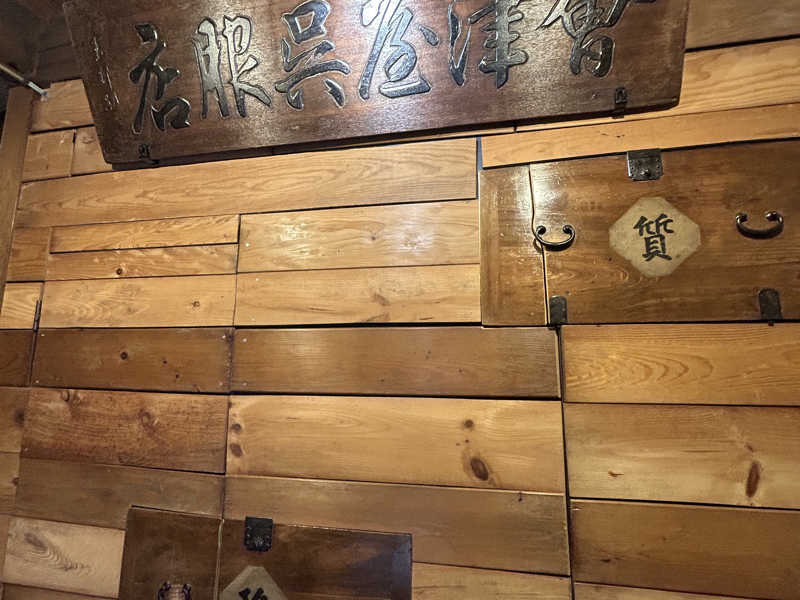 會津屋呉服店
質